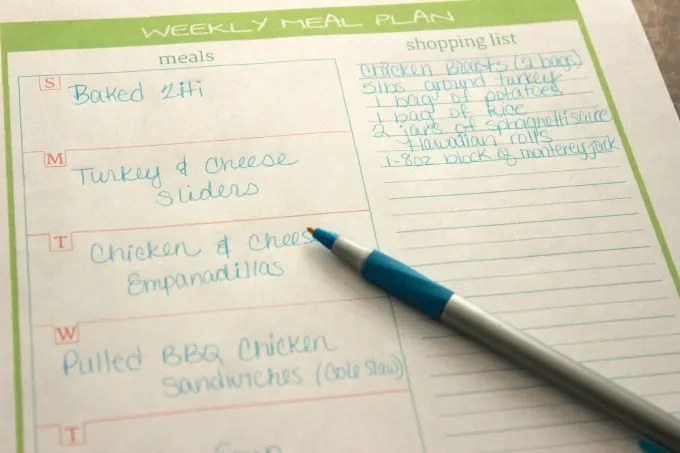 WEEKLY MEAL PLAN
meals
S
Baked Ziti
M
Turkey & Cheese
Sliders
T
Chicken & Chees
Empanadillas
W
Pulled BBQ Chicken
Sandwiches (Cole Slaw)
T
Soup
shopping list
Chicken Breasts (2 bags)
5lbs ground turkey
1 bag of potatoes
1 bag of Rice
2 jars of sphaghetti sauce
Hawaiian rolls
1-8oz block of monterey jack